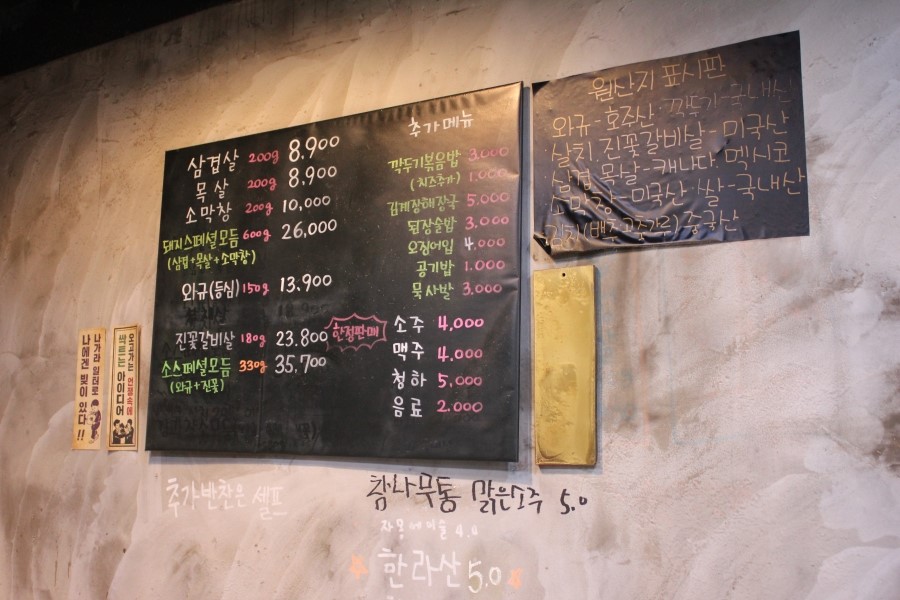 삼겹살 200g 8,900
목살 200g 8,900
소막창 200g 10,000
돼지스페셜모듬 600g 26,000
(삼겹+목살+소막창)
와규(등심) 150g 13,900
진꽃갈비살 180g 23.800 한정판매
소스페셜모듬 330g 35,700
(와규+진꽃)
추가메뉴
깍두기볶음밥 3.000
(치즈추가) 1.000
5.000
된장술밥 3.000
4.000
공기밥 1.000
묵사발 3.000
소주 4,000
맥주 4.000
청하 5,000
음료 2.000
원산지 표시판
와규-호주산 깍두기-국내산
살치.진꽃갈비살-미국산
삼겹.목살-캐나다.멕시코
소막창-미국산 쌀-국내산
김치(배추.고추가루)중국산
나가라 일터로
나에겐 빚이 있다!!
오고가는 언쟁속에
싹트는 아이디어
추가반찬은 셀프
참나무통 맑은소주 5.0
자몽에이슬 4.0
한라산 5.0